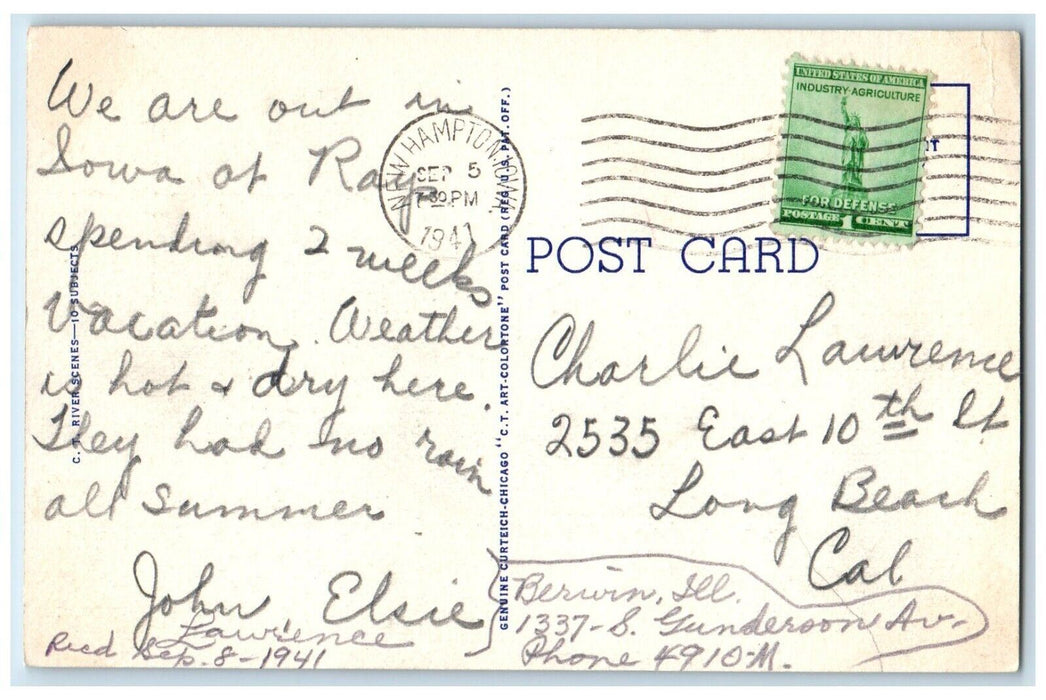 We are out in
Iowa at Ray
spending 2 weeks
vacation. Weather
is hot & dry here.
They had no rain
all summer
John Elsie
Lawrence
Recd Sep. 8-1941
C. T. RIVER SCENES—10 SUBJECTS
NEW HAMPTON, IOWA
SEP 5
7 30 PM
1941
GENUINE CURTEICH-CHICAGO "C. T. ART-COLORTONE" POST CARD (REG. U.S. PAT. OFF.)
UNITED STATES OF AMERICA
INDUSTRY-AGRICULTURE
FOR DEFENSE
POSTAGE 1 CENT
POST CARD
Charlie Lawrence
2535 East 10th St
Long Beach
Cal
Berwin, Ill.
1337-S. Gunderson Av.
Phone 4910-M.